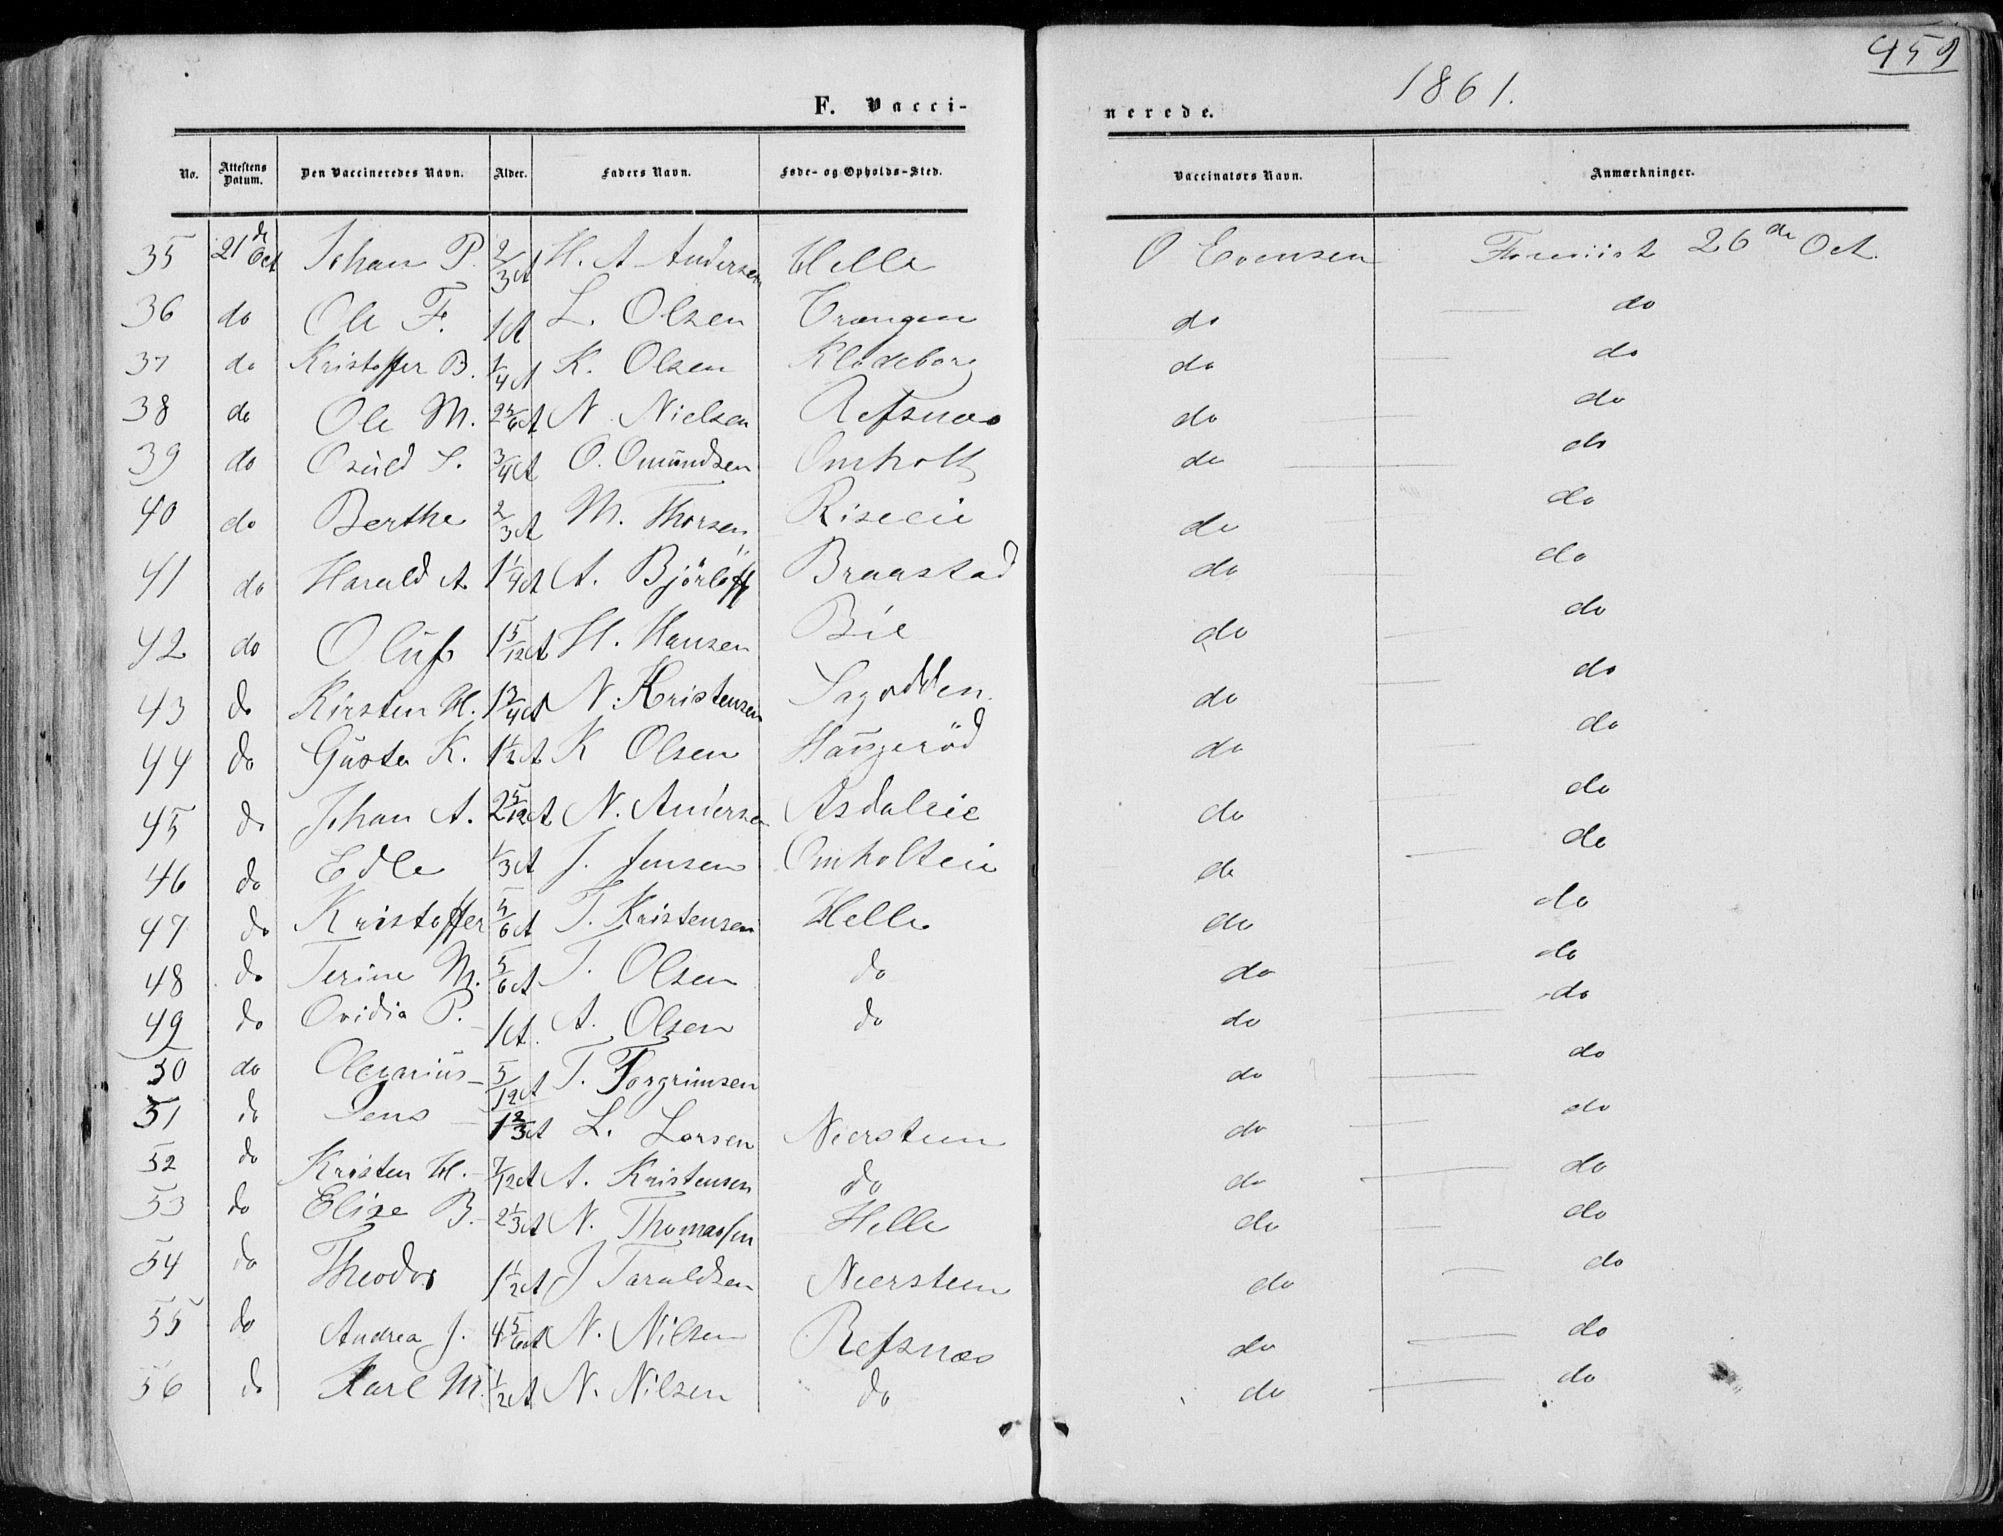 459
1861.
F. Vacci- nerede.
No. Attestens Datum. Den Vaccineredes Navn. Alder. Faders Navn. Føde- og Opholds-Sted. Vaccinators Navn. Anmærkninger.
35 21de Oct Johan P. 2/3 A H. A Andersen Helle O Evensen Foreviist 26de Oct.
36 do Ole F. 1 A L. Olsen Trangen do do
37 do Kristoffer B. 1/4 A K. Olsen Klodeborg do do
38 do Ole M. 2 5/6 A N Nielsen Refsnæs do do
39 do Osuld S. 3/4 A O. Omundsen Omholt do do
40 do Berthe 2/3 A M. Thorsen Riseeie do do
41 do Harald A 1 1/4 A A. Björloff Braastad do do
42 do Oluf 1 5/12 A H. Hansen Bie do do
43 do Kirsten H. 1 3/4 A N. Kristensen Sagodden do do
44 do Gusta K. 1 1/2 A K Olsen Haugeröd do do
45 do Johan A. 2 5/12 A N. Andersen Asdaleie do do
46 do Edle 1/3 A J. Jensen Omholteie do do
47 do Kristoffer 5/6 A T. Kristensen Helle do do
48 do Terine M. 5/6 A T. Olsen do do do
49 do Ovidia P. 1 A. A. Olsen do do do
50 do Olegarius 5/12 A T. Torgrimsen do do
51 do Jens 1 2/3 A L. Larsen Neersteen do do
52 do Kristen H. 7/12 A A. Kristensen do do do
53 do Elise B. 2 1/3 A N. Thomassen Helle do do
54 do Theodor 1 1/2 A J Taraldsen Neersteen do do
55 do Andrea J. 4 5/6 A N. Nilsen Refsnæs do do
56 do Karl M. 1/2 A N. Nilsen do do do